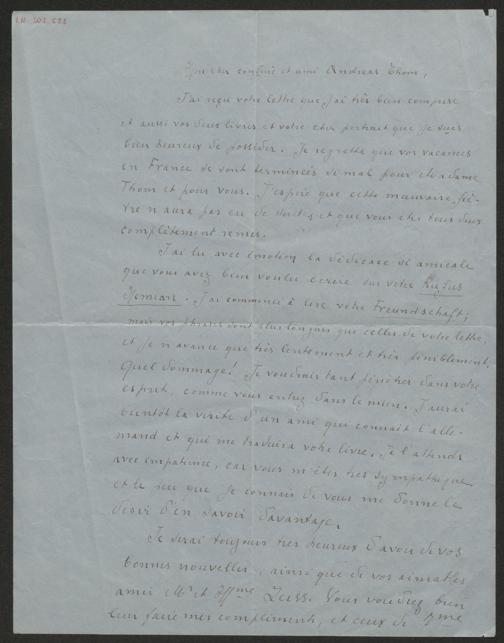 I.N. 201.588
Mon cher confrère et ami Andreas Thom,
J'ai reçu votre lettre que j'ai très bien comprise
et aussi vos deux livres et votre cher portrait que je suis
bien heureux de posséder. Je regrette que vos vacances
en France se sont terminées si mal pour Madame
Thom et pour vous. J'espère que cette mauvaise fiè-
vre n'aura pas eu de suites et que vous êtes tous deux
complètement remis.
J'ai lu avec émotion la dédicace si amicale
que vous avez bien voulu écrire sur votre Rufus
. J'ai commencé à lire votre Freundschaft;
mais vos phrases sont plus longues que celles de votre lettre,
et je n'avance que très lentement et très péniblement.
Quel dommage! Je voudrais tant pénétrer dans votre
esprit, comme vous entrez dans le mien. J'aurai
bientôt la visite d'un ami qui connaît l'alle-
mand et qui me traduira votre livre. Je l'attends
avec impatience, car vous m'êtes très sympathique
et le peu que je connais de vous me donne le
désir d'en savoir davantage.
Je serai toujours très heureux d'avoir de vos
bonnes nouvelles, ainsi que de vos aimables
amis Mr et Mme Leiss. Vous voudrez bien
leur faire mes compliments, et ceux de Mme